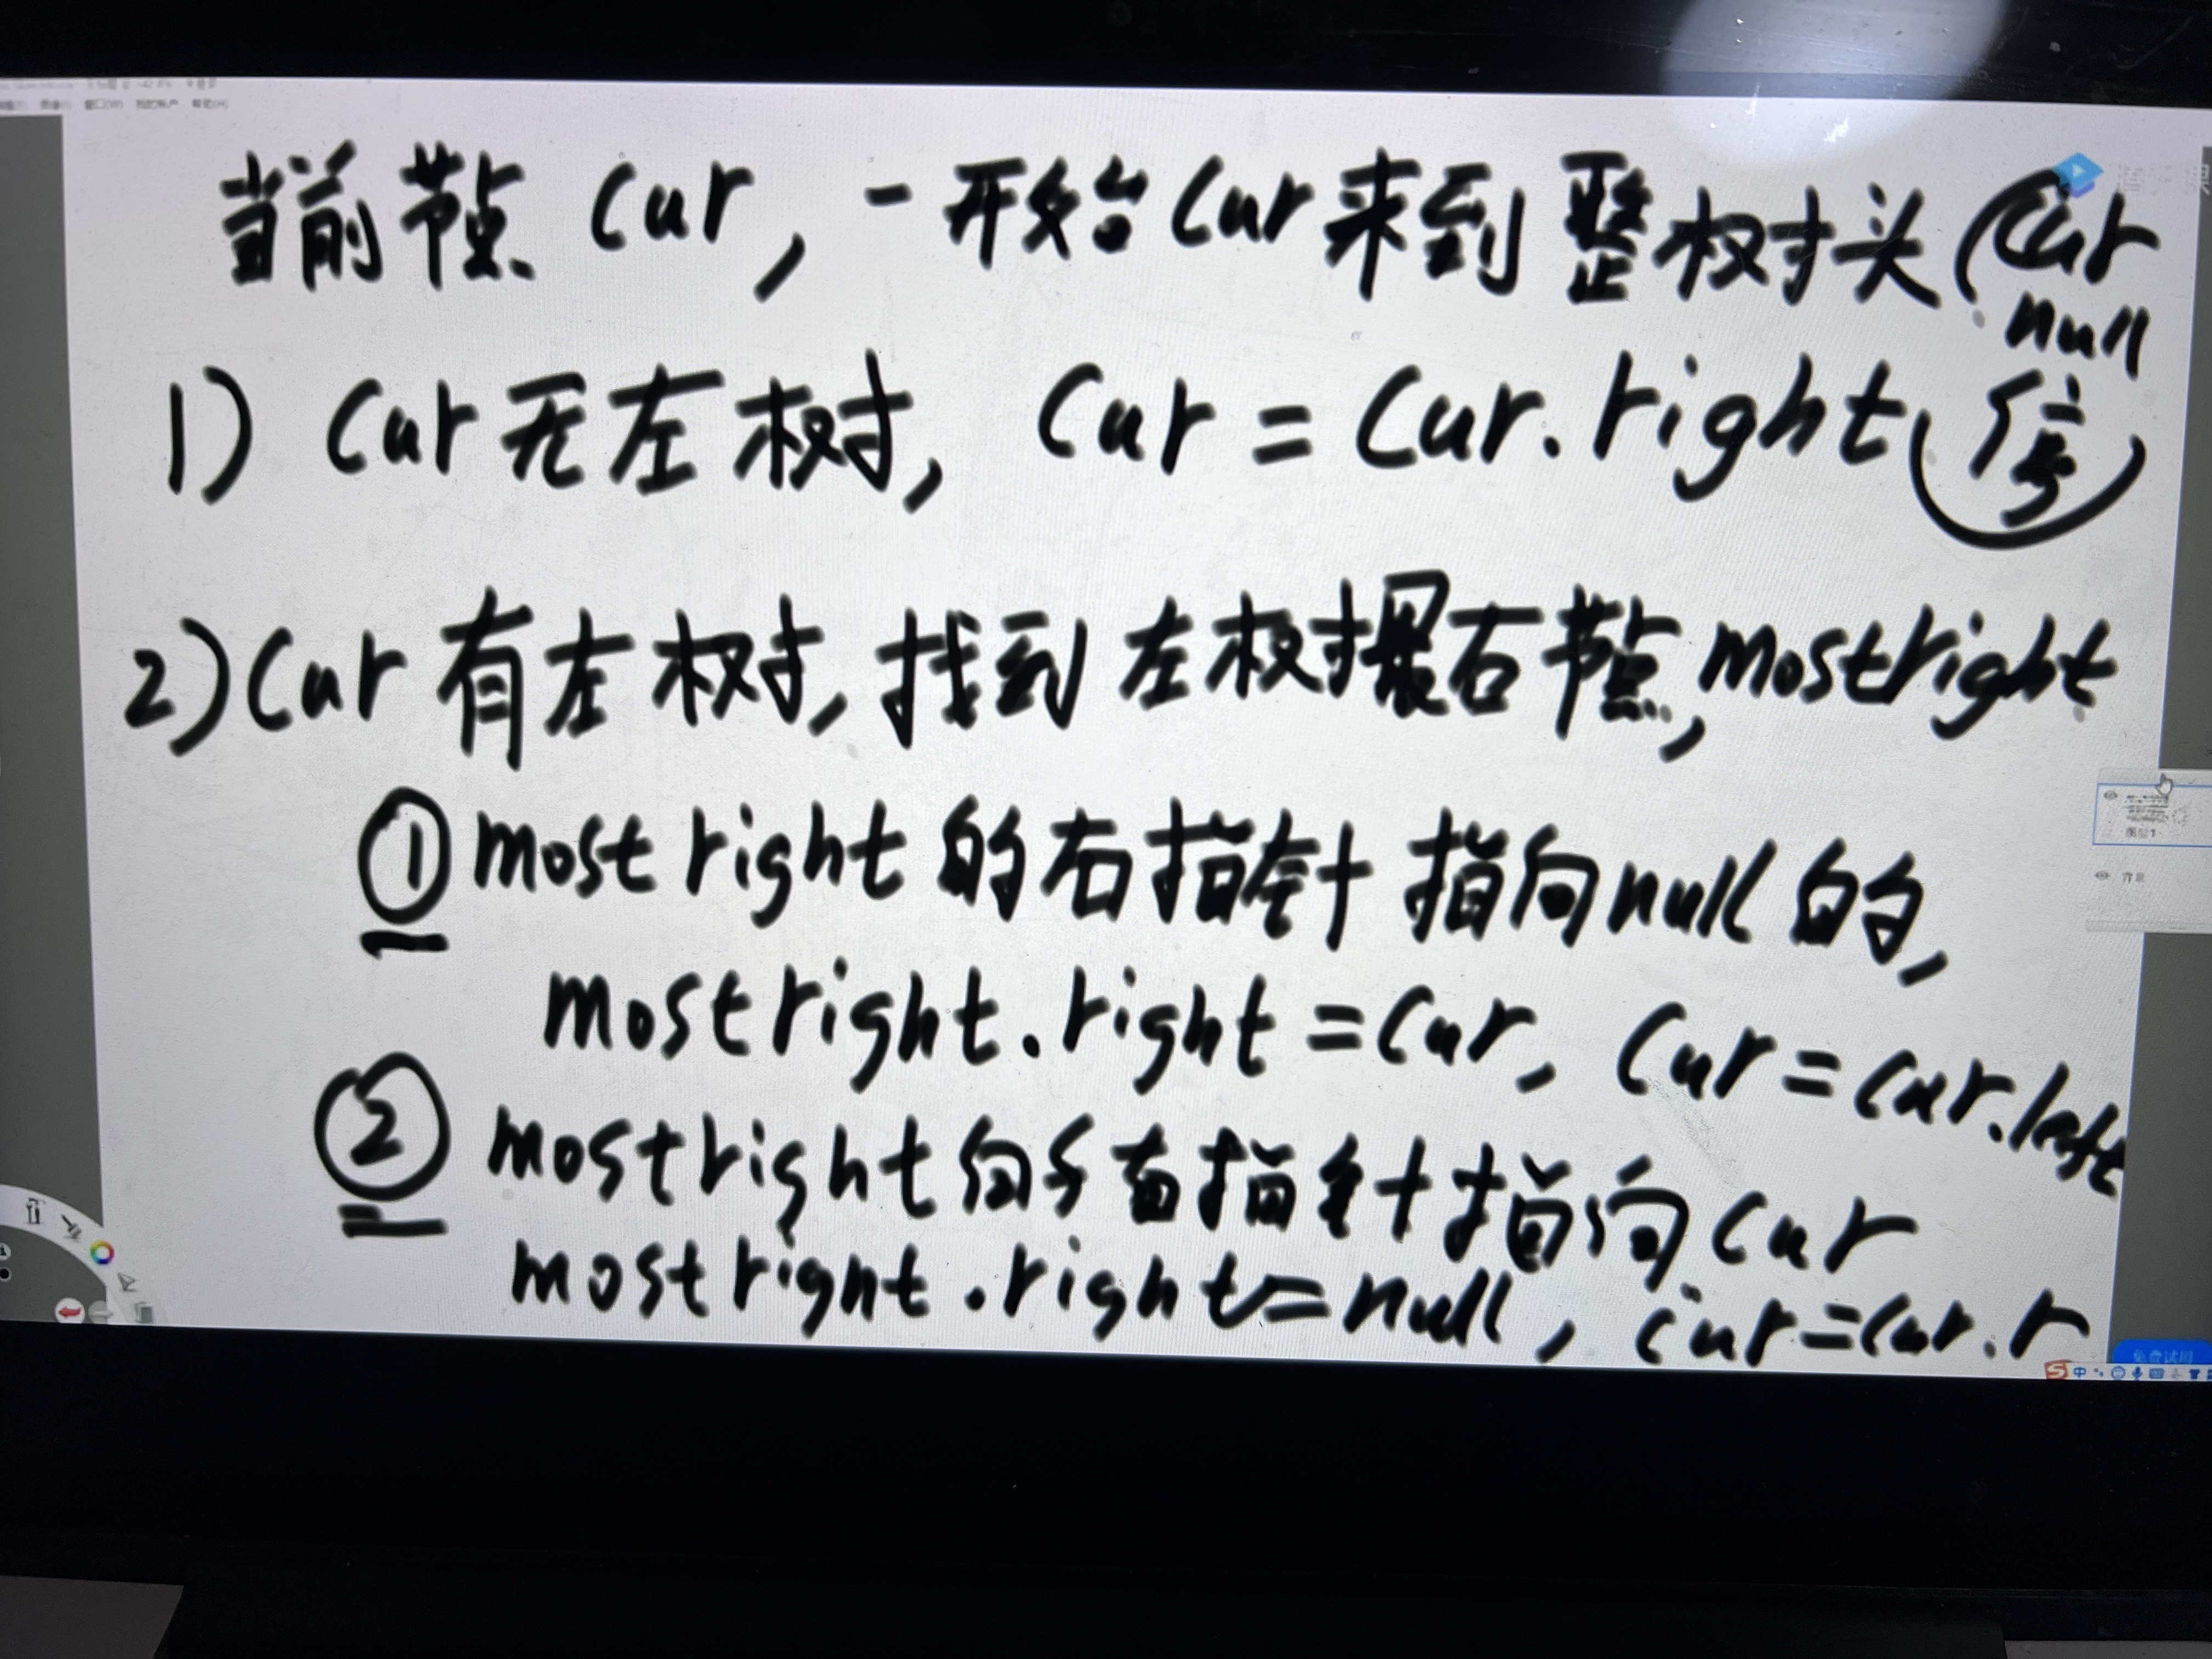 窗口(W) 我的账户 帮助(H)
当前节点 cur, 一开始cur来到整树头(cur
null
停)
1) cur无左树, cur = cur.right
2) cur有左树, 找到左树最右节点, mostright
① mostright的右指针指向null的,
mostright.right = cur, cur = cur.left
② mostright的右指针指向cur
mostright.right = null, cur = cur.r
图层1
背景
免费试用
中